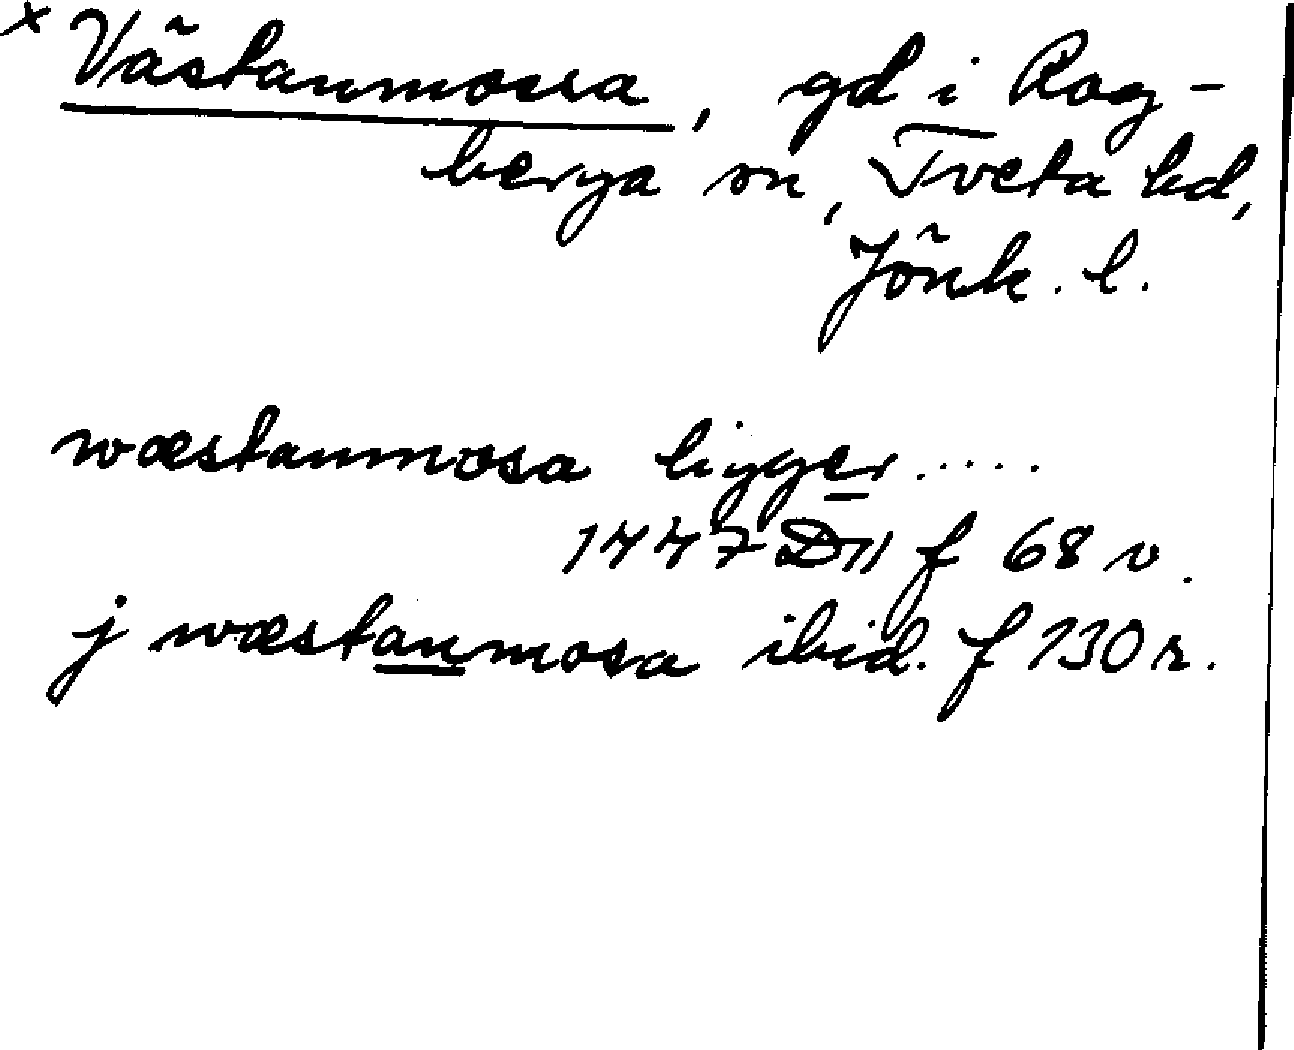 x Västanmossa, gd i Rog-
berga sn, Tveta hd,
Jönk. l.
wæstanmosa ligger.....
1447 D11 f 68 v.
j wæstanmosa ibid. f 130 r.